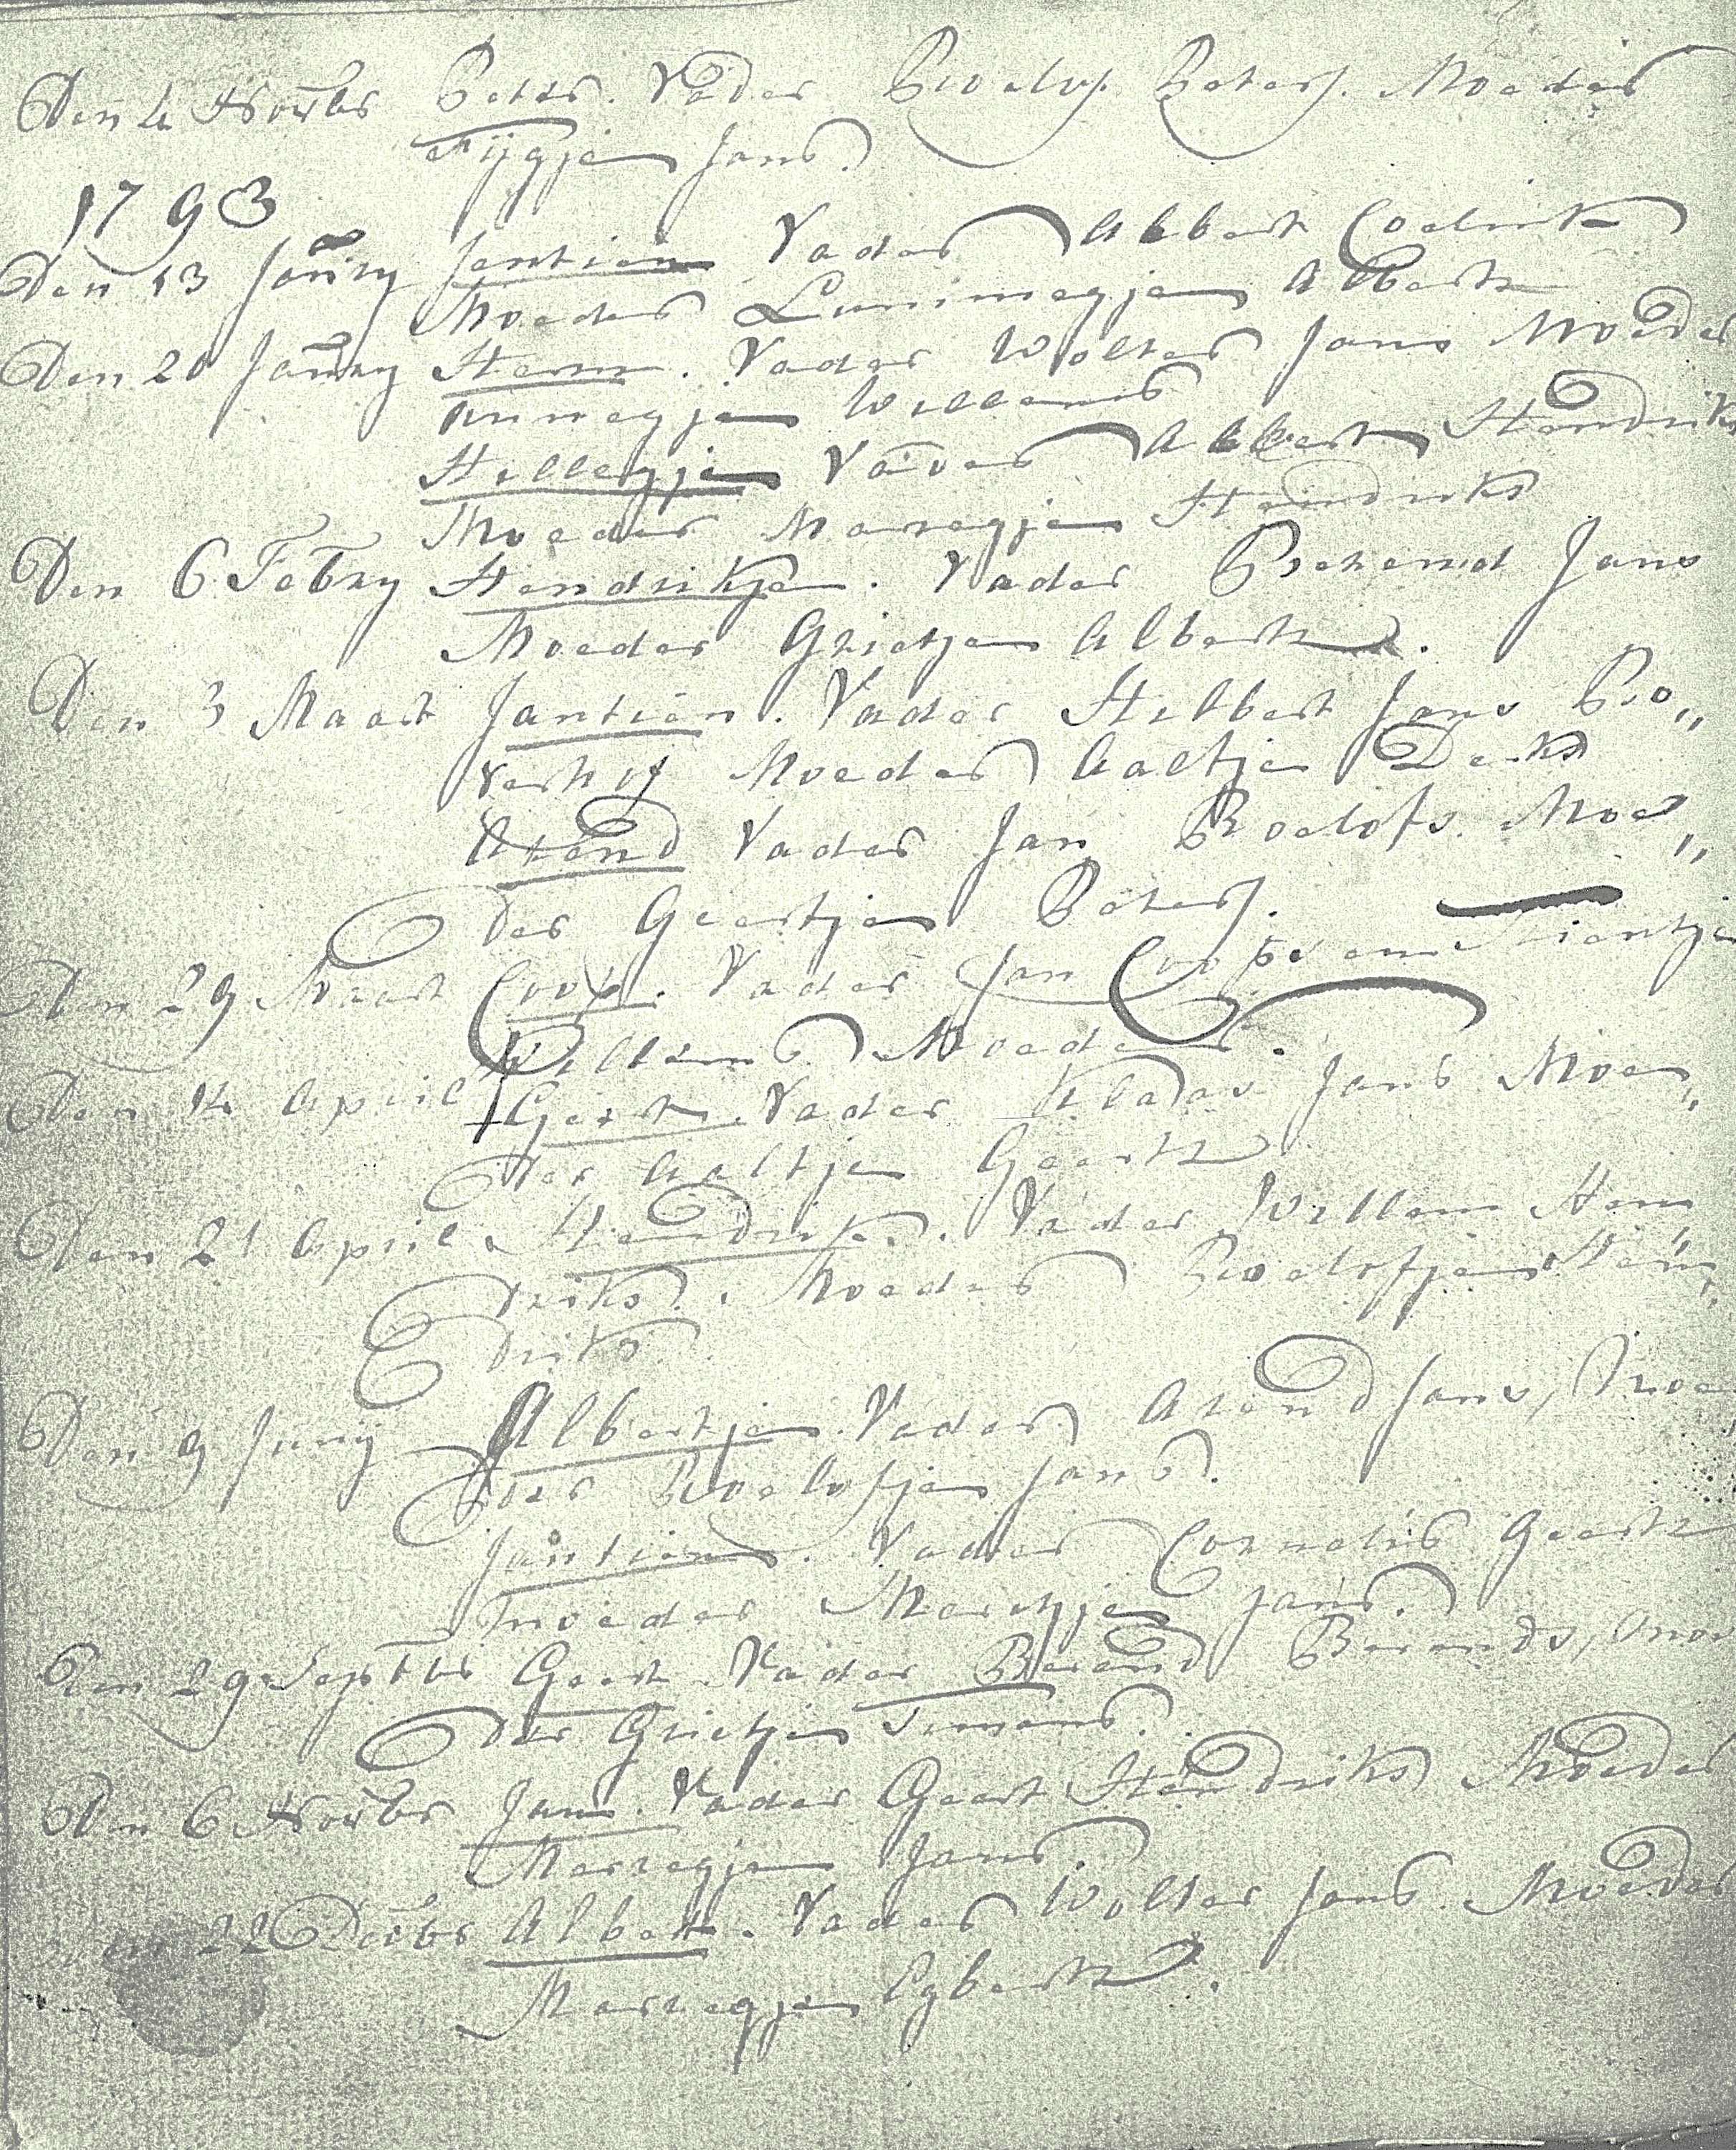 Den 4 Novbr Peter. Vader Roelof Peters. Moeder
Fijgjen Jans.
1793
Den 13 Janry Jentien Vader Abbert Coelert
Moeder Lummegjen Alberts
Den 20 Janry Harm. Vader Wolter Jans Moeder
Annegjen Willems
Hillegjen Vader Albert Hendriks
Moeder Marregjen Hendriks
Den 6 Febry Hendrikjen. Vader Berend Jans
Moeder Grietjen Alberts.
Den 3 Maart Jantien. Vader Hilbert Jans Bo„
verhof Moeder Aaltjen Derks
Arend Vader Jan Roelofs. Moe„
der Geertjen Peters.
Den 29 Maart Coop. Vader Jan Coops en Stientjen
Willems Moeder.
Den 14 April Geert. Vader Klaas Jans Moe„
der Aaltjen Geerts
Den 21 April Hendrik. Vader Willem Hen„
driks. Moeder Roelofjen Hen„
driks.
Den 9 Junij Albertjen. Vader Arend Jans, Moe
der Roelofjen Jans.
Jantien. Vader Cornelis Geerts
moeder Merchjen Jans.
Den 29 Septbr Geert Vader Berend Berends, moe
der Grietjen Timens.
Den 6 Novbr Jan. Vader Geert Hendriks Moeder
Marregjen Jans.
Den 22 Decbr Albert. Vader Wolter Jans. Moeder
Marregjen Egberts.